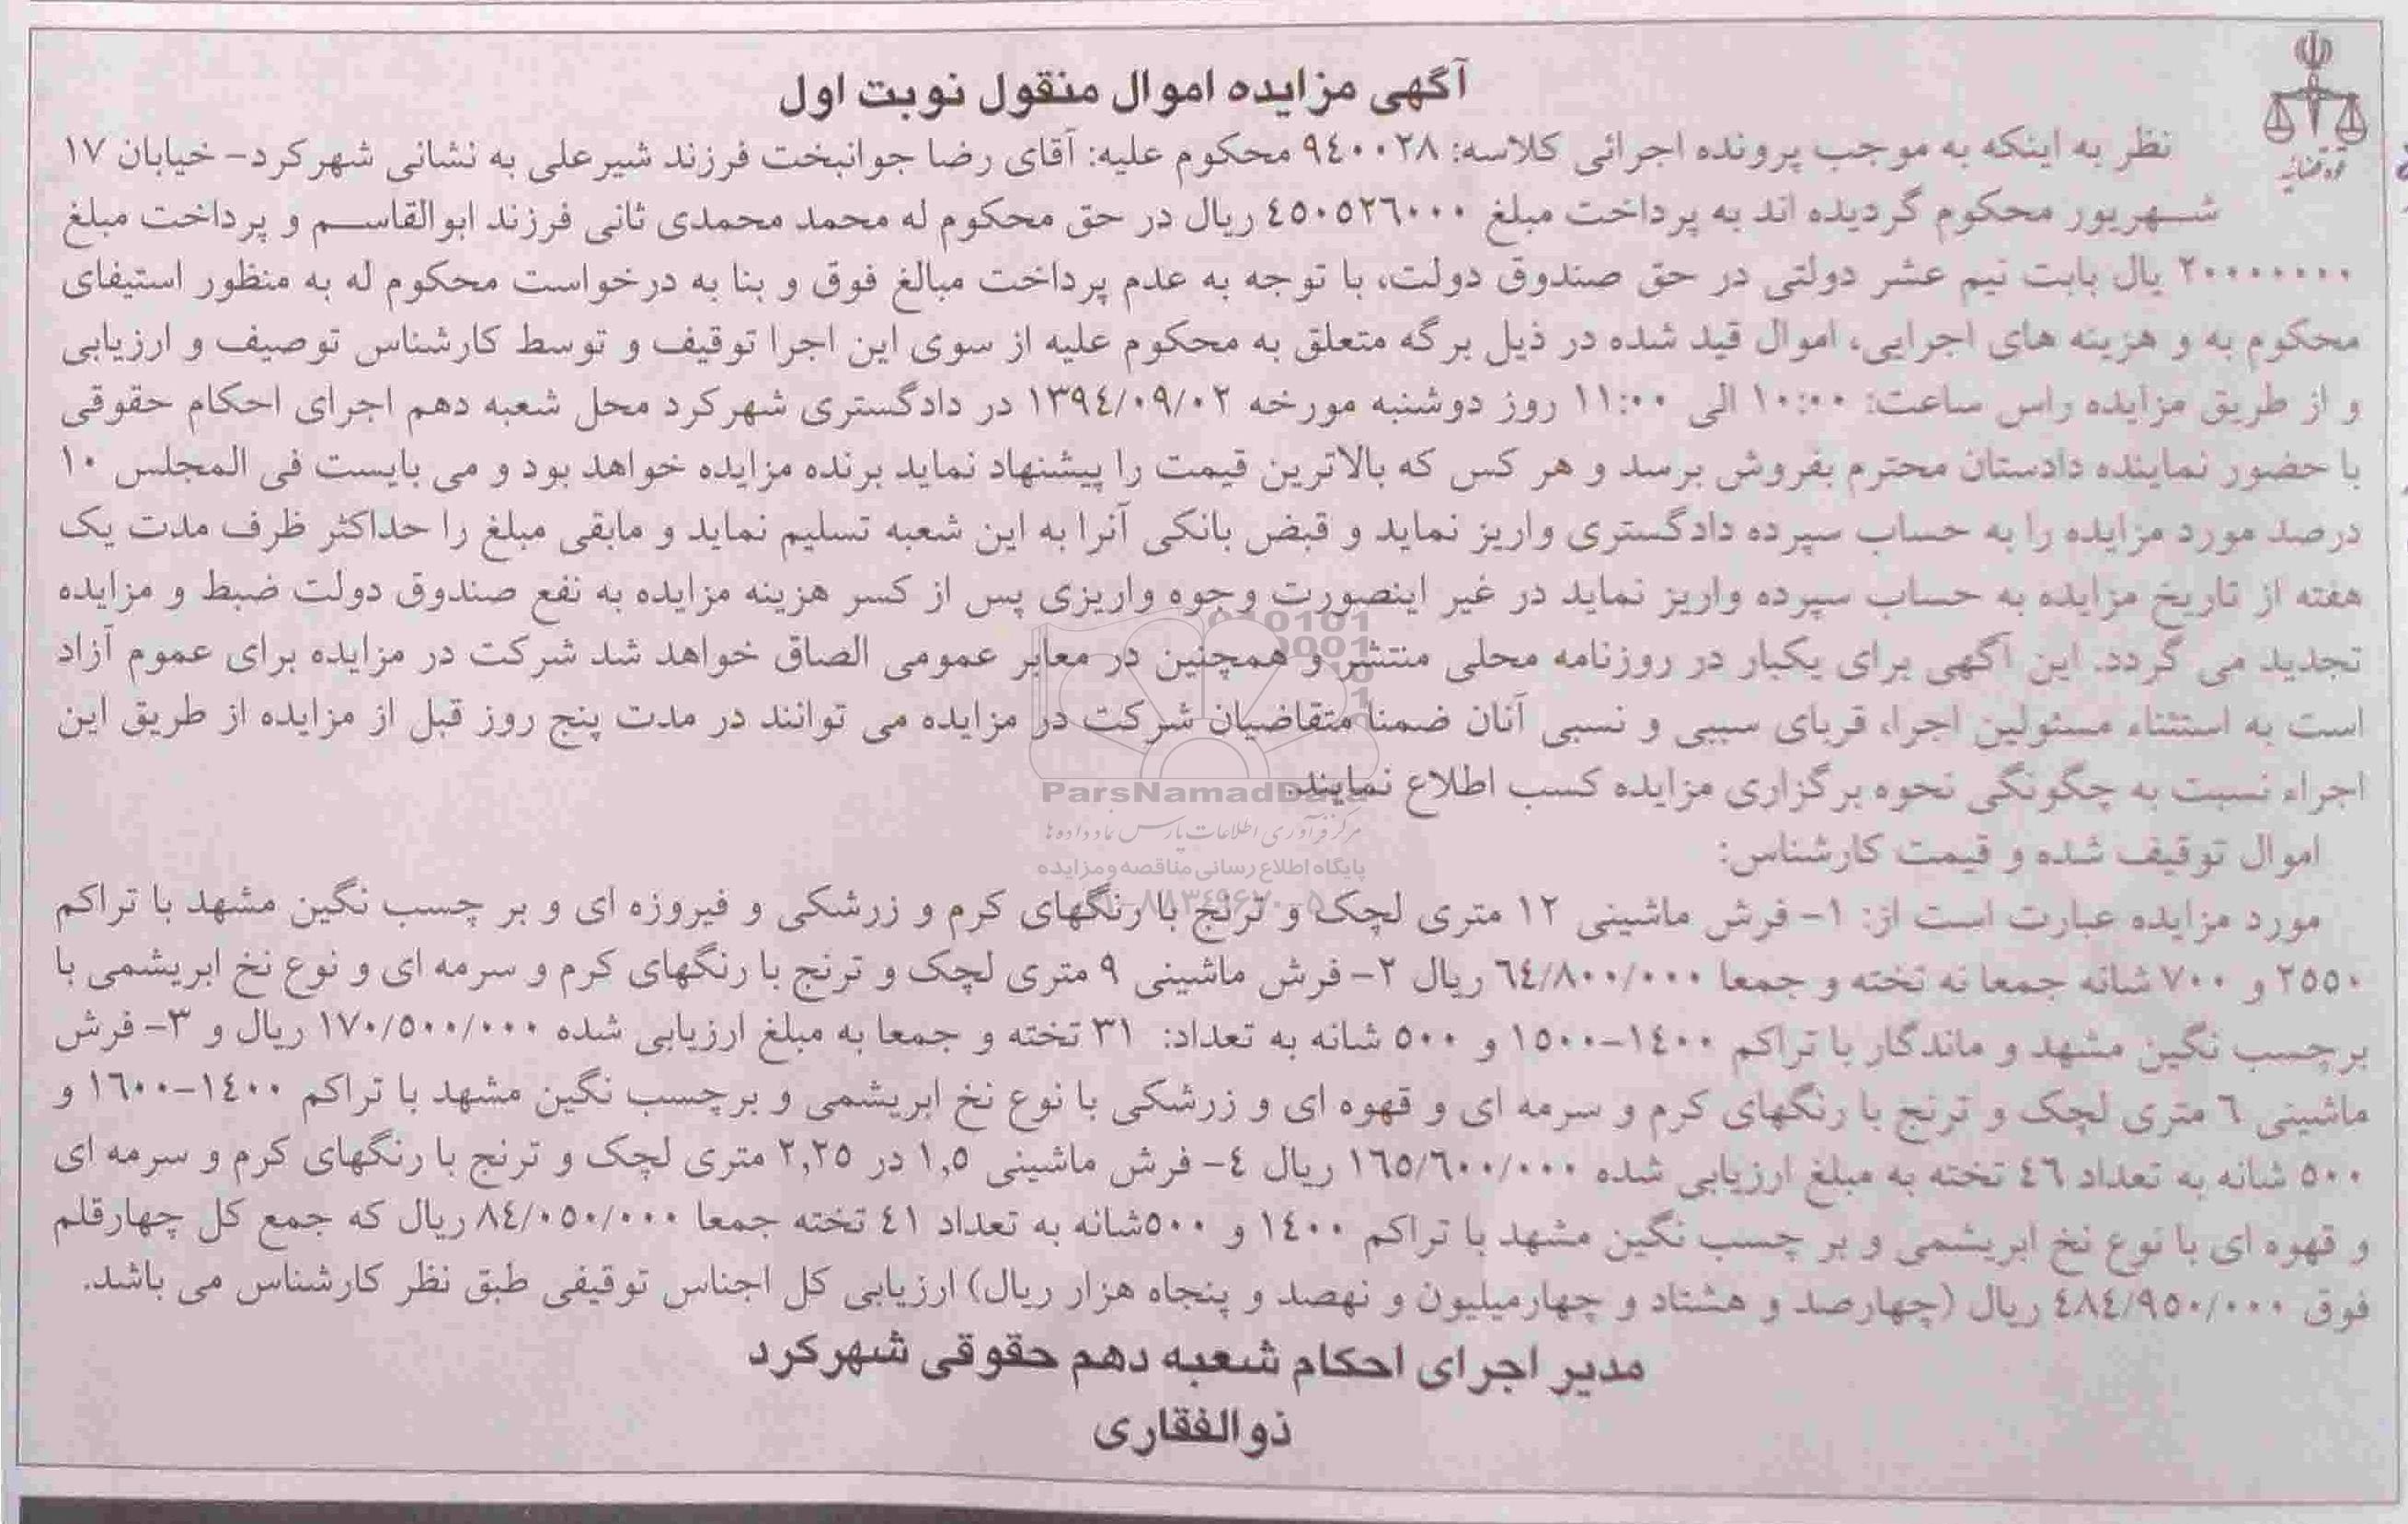 آگهی مزایده اموال منقول نوبت اول
قوه قضائیه
نظر به اینکه به موجب پرونده اجرائی کلاسه: ۹٤۰۰۲۸ محکوم علیه: آقای رضا جوانبخت فرزند شیرعلی به نشانی شهرکرد- خیابان ۱۷
شهریور محکوم گردیده اند به پرداخت مبلغ ٤۵۰۵۲٦۰۰۰ ریال در حق محکوم له محمد محمدی ثانی فرزند ابوالقاسم و پرداخت مبلغ
۲۰۰۰۰۰۰۰ یال بابت نیم عشر دولتی در حق صندوق دولت، با توجه به عدم پرداخت مبالغ فوق و بنا به درخواست محکوم له به منظور استیفای
محکوم به و هزینه های اجرایی، اموال قید شده در ذیل برگه متعلق به محکوم علیه از سوی این اجرا توقیف و توسط کارشناس توصیف و ارزیابی
و از طریق مزایده راس ساعت: ۱۰:۰۰ الی ۱۱:۰۰ روز دوشنبه مورخه ۱۳۹٤/۰۹/۰۲ در دادگستری شهرکرد محل شعبه دهم اجرای احکام حقوقی
با حضور نماینده دادستان محترم بفروش برسد و هر کس که بالاترین قیمت را پیشنهاد نماید برنده مزایده خواهد بود و می بایست فی المجلس ۱۰
درصد مورد مزایده را به حساب سپرده دادگستری واریز نماید و قبض بانکی آنرا به این شعبه تسلیم نماید و مابقی مبلغ را حداکثر ظرف مدت یک
هفته از تاریخ مزایده به حساب سپرده واریز نماید در غیر اینصورت وجوه واریزی پس از کسر هزینه مزایده به نفع صندوق دولت ضبط و مزایده
تجدید می گردد. این آگهی برای یکبار در روزنامه محلی منتشر و همچنین در معابر عمومی الصاق خواهد شد شرکت در مزایده برای عموم آزاد
است به استثناء مسئولین اجرا، قربای سببی و نسبی آنان ضمنا متقاضیان شرکت در مزایده می توانند در مدت پنج روز قبل از مزایده از طریق این
اجراء نسبت به چگونگی نحوه برگزاری مزایده کسب اطلاع نمایند.
ParsNamadData
مرکز فرآوری اطلاعات پارس نماد داده ها
اموال توقیف شده و قیمت کارشناس:
پایگاه اطلاع رسانی مناقصه و مزایده
مورد مزایده عبارت است از: ۱- فرش ماشینی ۱۲ متری لچک و ترنج با رنگهای کرم و زرشکی و فیروزه ای و بر چسب نگین مشهد با تراکم
۲۵۵۰ و ۷۰۰ شانه جمعا نه تخته و جمعا ٦٤/۸۰۰/۰۰۰ ریال ۲- فرش ماشینی ۹ متری لچک و ترنج با رنگهای کرم و سرمه ای و نوع نخ ابریشمی با
برچسب نگین مشهد و ماندگار با تراکم ۱٤۰۰-۱۵۰۰ و ۵۰۰ شانه به تعداد: ۳۱ تخته و جمعا به مبلغ ارزیابی شده ۱۷۰/۵۰۰/۰۰۰ ریال و ۳- فرش
ماشینی ٦ متری لچک و ترنج با رنگهای کرم و سرمه ای و قهوه ای و زرشکی با نوع نخ ابریشمی و برچسب نگین مشهد با تراکم ۱٤۰۰-۱٦۰۰ و
۵۰۰ شانه به تعداد ٤٦ تخته به مبلغ ارزیابی شده ۱٦۵/٦۰۰/۰۰۰ ریال ٤- فرش ماشینی ۱,۵ در ۲,۲۵ متری لچک و ترنج با رنگهای کرم و سرمه ای
و قهوه ای با نوع نخ ابریشمی و بر چسب نگین مشهد با تراکم ۱٤۰۰ و ۵۰۰شانه به تعداد ٤۱ تخته جمعا ۸٤/۰۵۰/۰۰۰ ریال که جمع کل چهارقلم
فوق ٤۸٤/۹۵۰/۰۰۰ ریال (چهارصد و هشتاد و چهارمیلیون و نهصد و پنجاه هزار ریال) ارزیابی کل اجناس توقیفی طبق نظر کارشناس می باشد.
مدیر اجرای احکام شعبه دهم حقوقی شهرکرد
ذوالفقاری